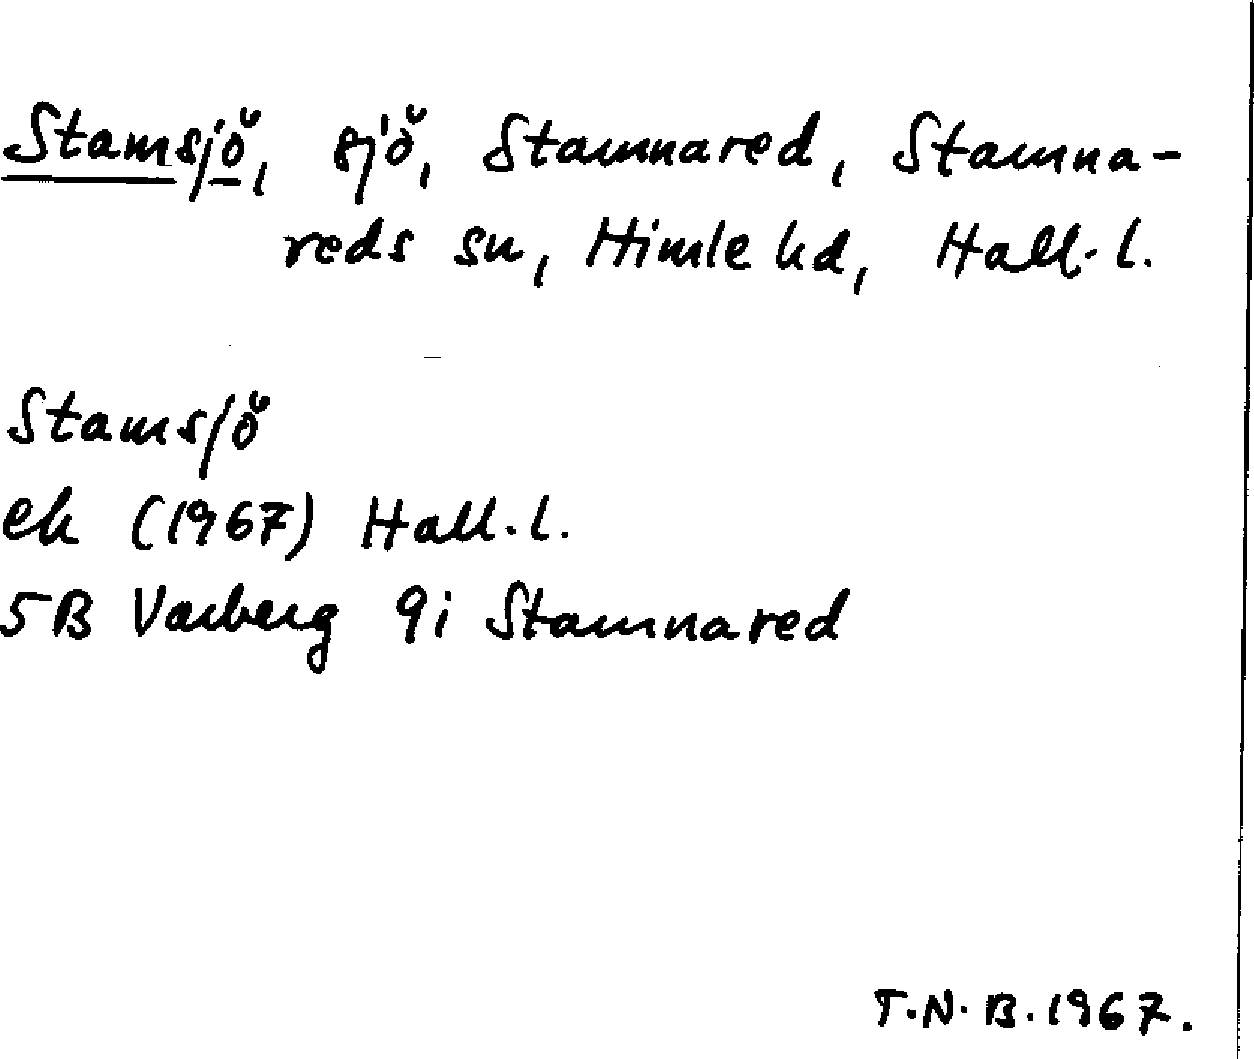 Stamsjö, sjö, Stamnared, Stamna-
reds sn, Himle hd, Hall. l.
Stamsjö
ek (1967) Hall. l.
5B Varberg 9i Stamnared
T.N.B. 1967.